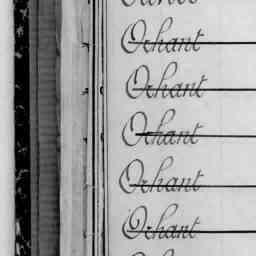 Ochant
Ochant
Ochant
Ochant
Ochant